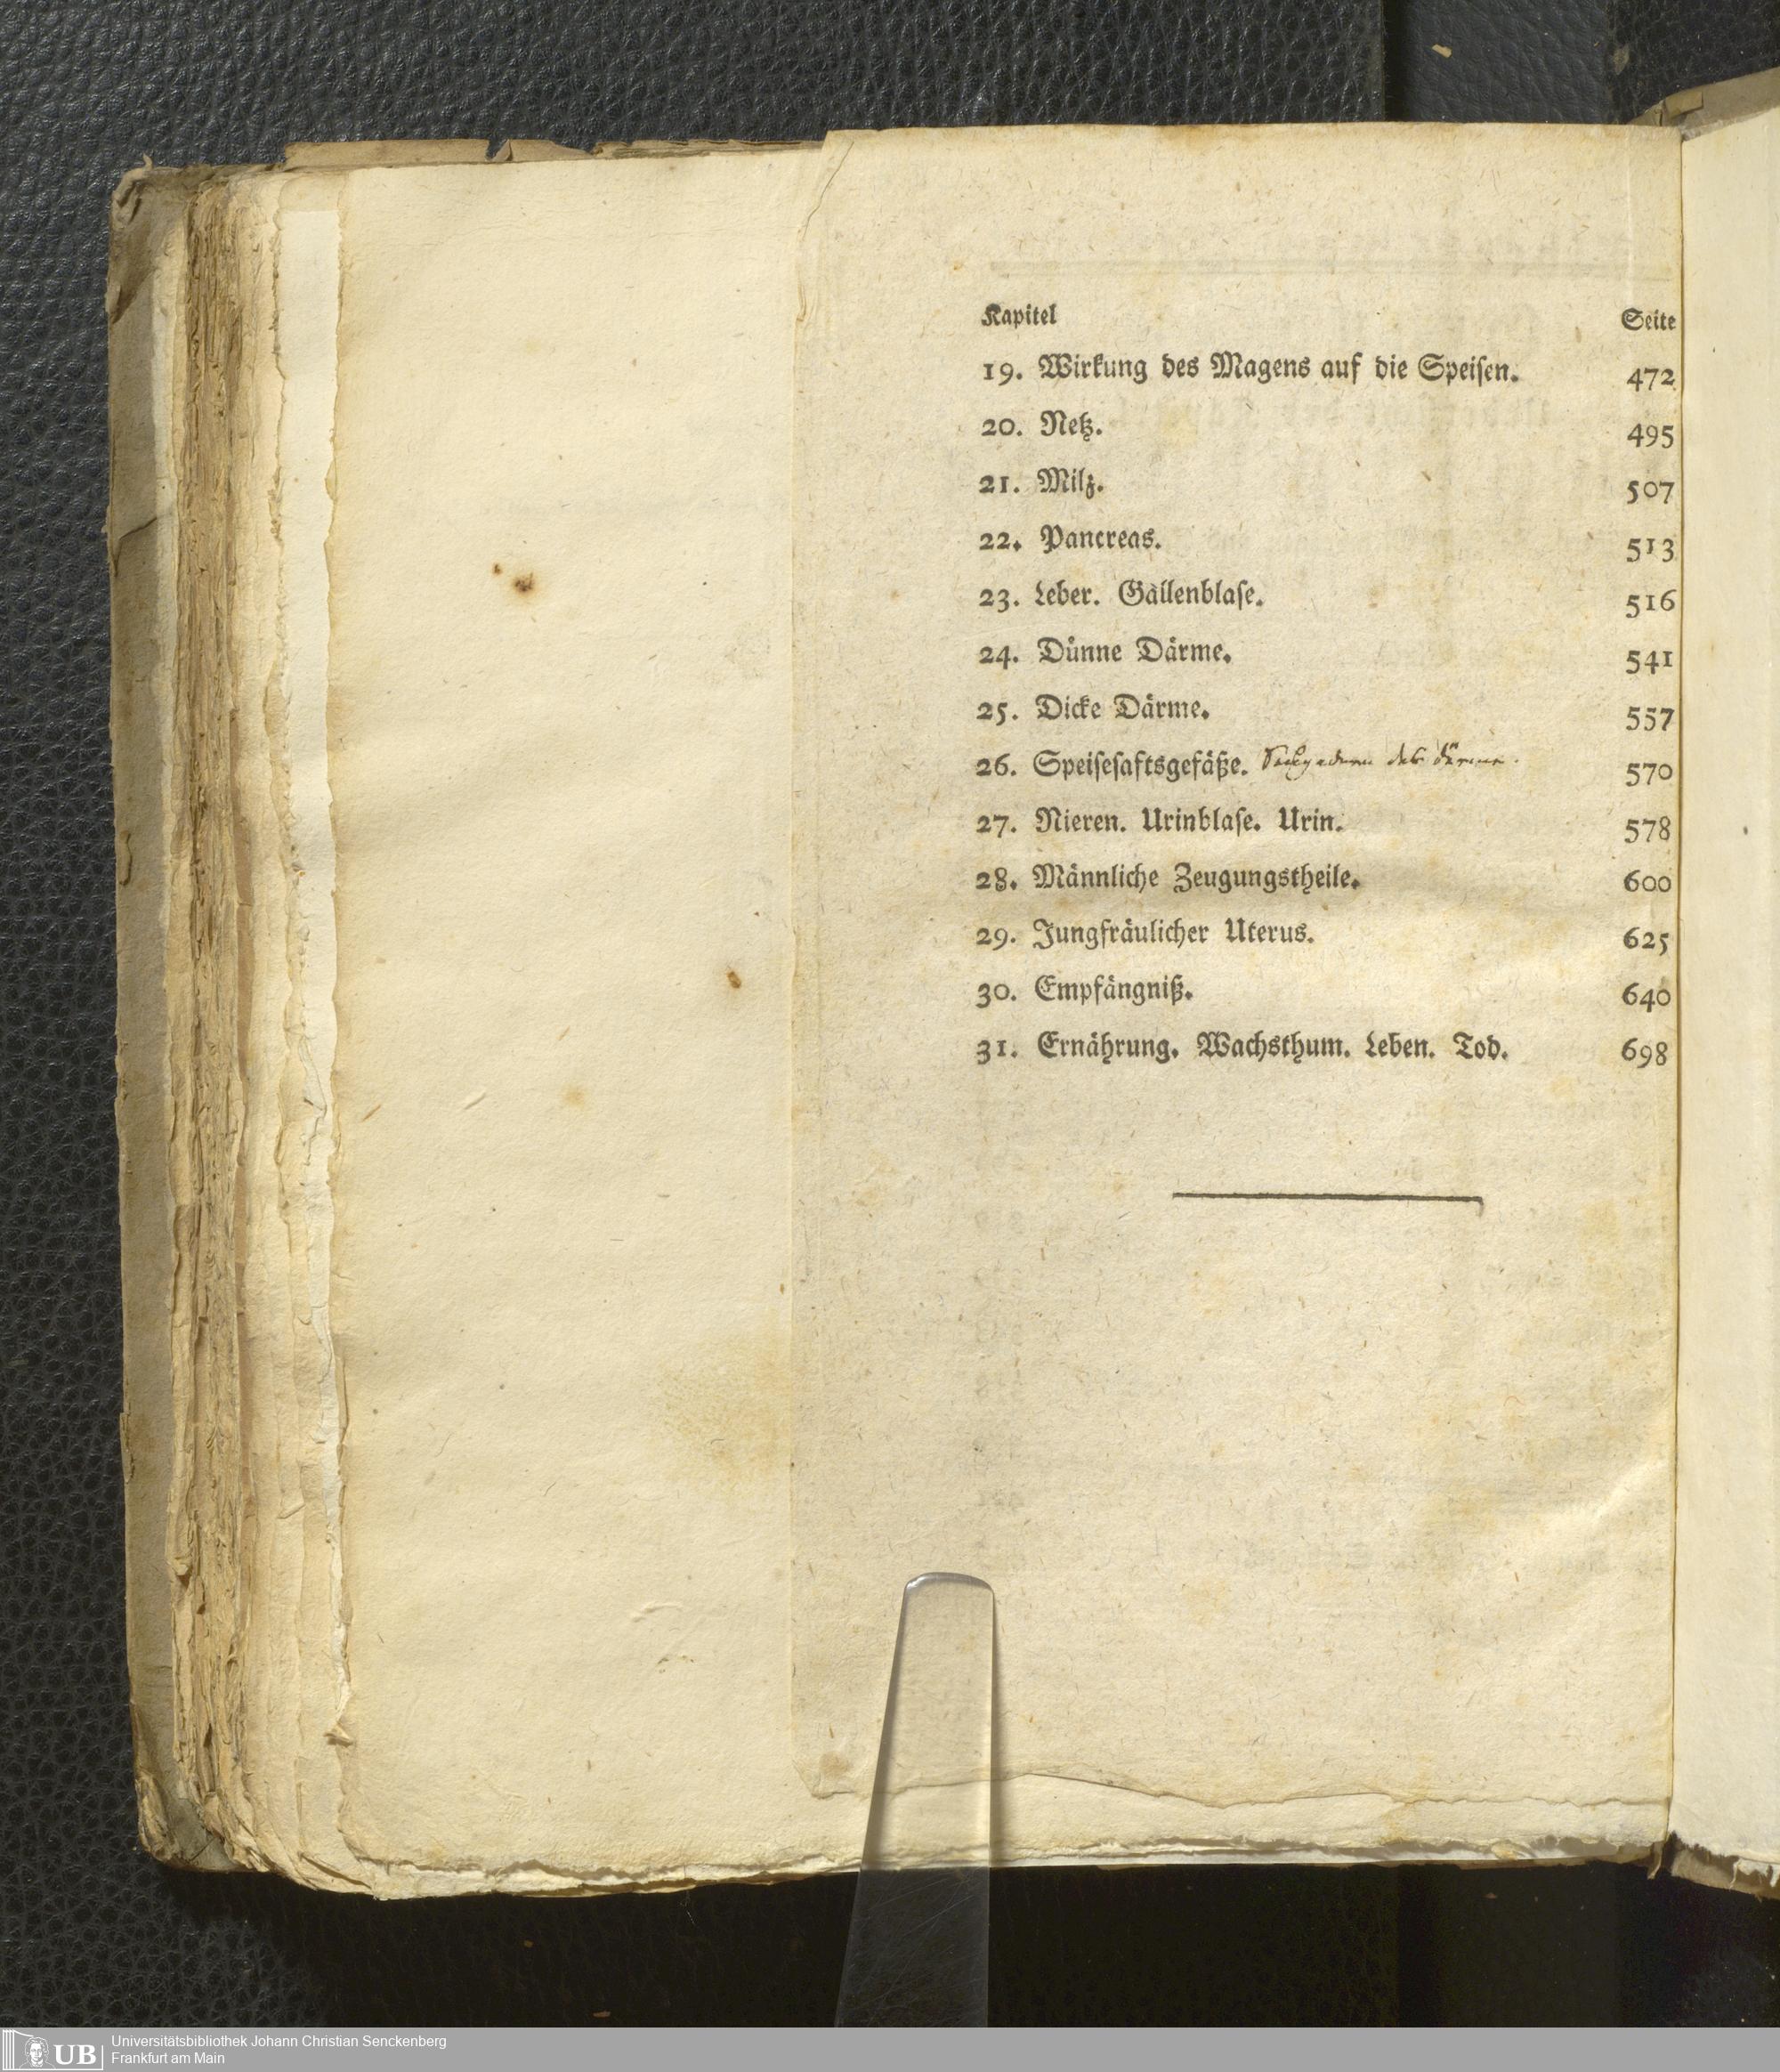 Kapitel Seite
19. Wirkung des Magens auf die Speiſen. 472
20. Netz. 495
21. Milz. 507
22. Pancreas. 513
23. Leber. Gallenblaſe. 516
24. Dünne Därme. 541
25. Dicke Därme. 557
26. Speiſeſaftsgefäße. Saugadern des Därme. 570
27. Nieren. Urinblaſe. Urin. 578
28. Männliche Zeugungstheile. 600
29. Jungfräulicher Uterus. 625
30. Empfängniß. 640
31. Ernährung. Wachsthum. Leben. Tod. 698
UB Universitätsbibliothek Johann Christian Senckenberg
Frankfurt am Main